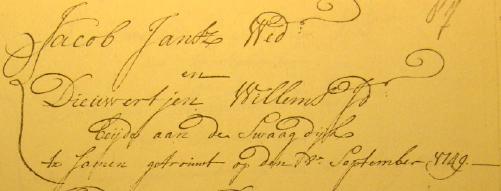 Jacob Jansz Wedr
en
Dieuwertjen Willems Jd
beijde aan de Swaagdijk
te samen getrouwt op den September 1749.